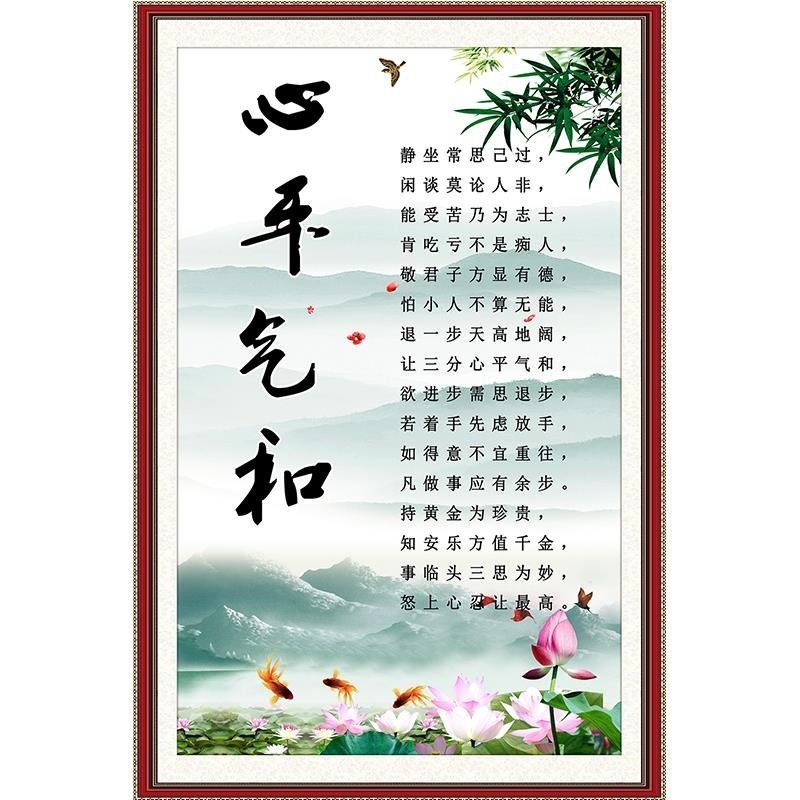 心平气和
静坐常思己过，
闲谈莫论人非，
能受苦乃为志士，
肯吃亏不是痴人，
敬君子方显有德，
怕小人不算无能，
退一步天高地阔，
让三分心平气和，
欲进步需思退步，
若着手先虑放手，
如得意不宜重往，
凡做事应有余步。
持黄金为珍贵，
知安乐方值千金，
事临头三思为妙，
怒上心忍让最高。